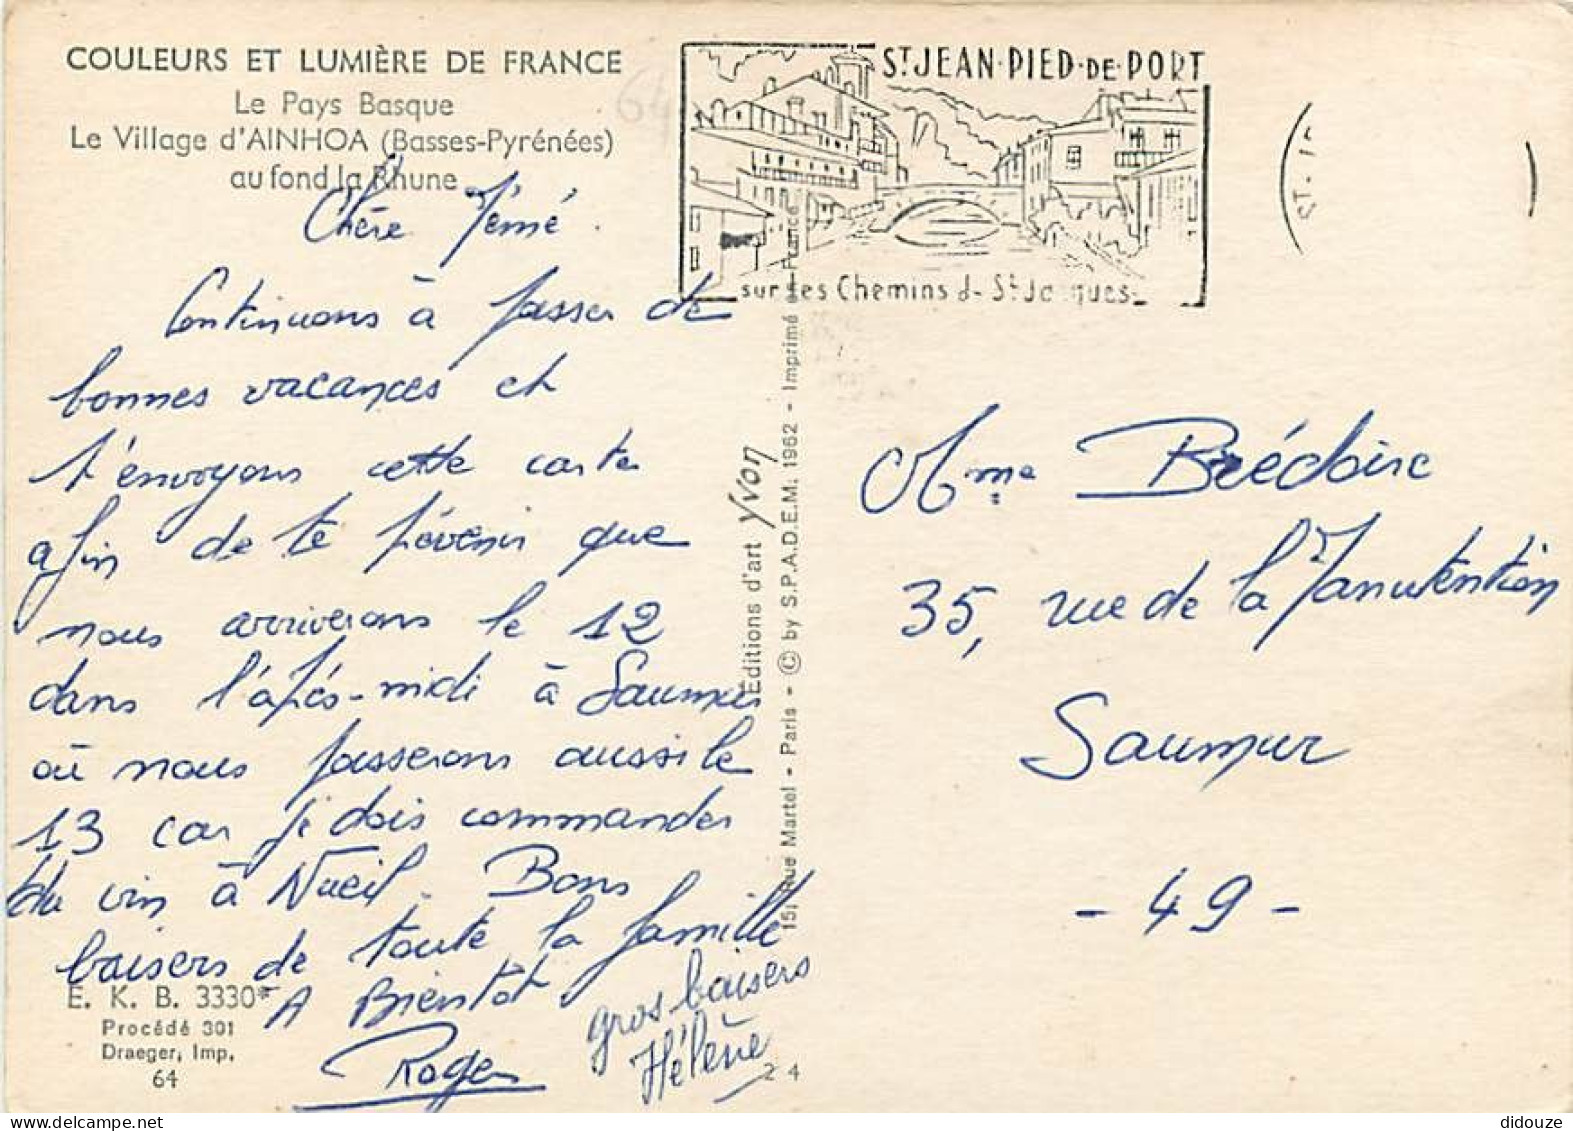 COULEURS ET LUMIÈRE DE FRANCE
Le Pays Basque
Le Village d'AINHOA (Basses-Pyrénées)
au fond la Rhune
64
Chère Mémé.
Continuons à passer de
bonnes vacances et
t'envoyons cette carte
afin de te prévenir que
nous arriverons le 12
dans l'après-midi à Saumur
où nous passerons aussi le
13 car je dois commander
du vin à Nueil. Bons
baisers de toute la famille
A Bientôt
Roger
gros baisers
Hélène
E. K. B. 3330*
Procédé 301
Draeger, Imp.
64
24
Editions d'art Yvon
15, Rue Martel - Paris - © by S.P.A.D.E.M. 1962 - Imprimé en France
ST JEAN·PIED·DE·PORT
sur les Chemins de St Jacques
ST-
Mme Brédoire
35, rue de la Manutention
Saumur
- 49 -
didouze